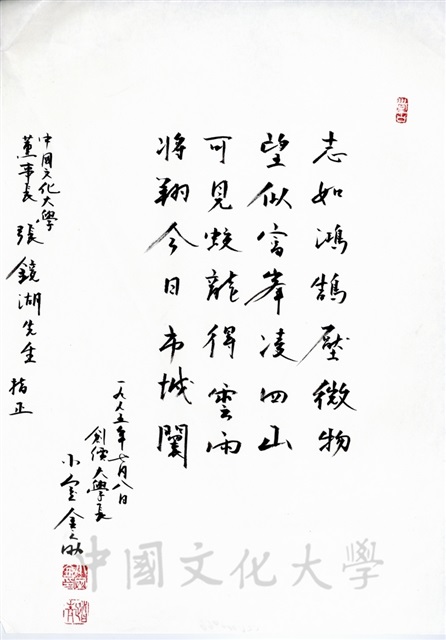 志如鴻鵠壓微物
望似富峯凌四山
可見蛟龍得雲雨
将翔今日市城闤
一九八五年七月八日
創価大學長
小室金之助
中國文化大學
董事長 張鏡湖先生 指正
中國文化大學